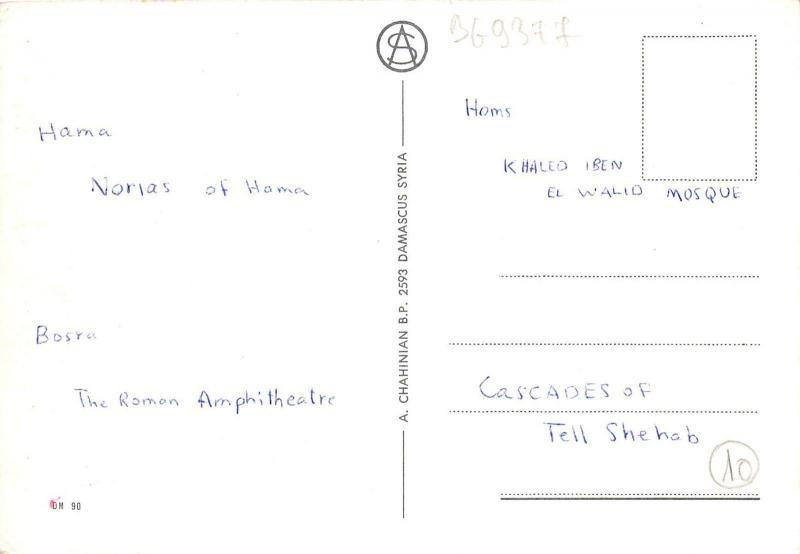 Hama
Norias of Hama
Bosra
The Roman Amphitheatre
DM 90
A. CHAHINIAN B.P. 2593 DAMASCUS SYRIA
BG9377
Homs
KHALED IBEN
EL WALID MOSQUE
CASCADES OF
Tell Shehab
10